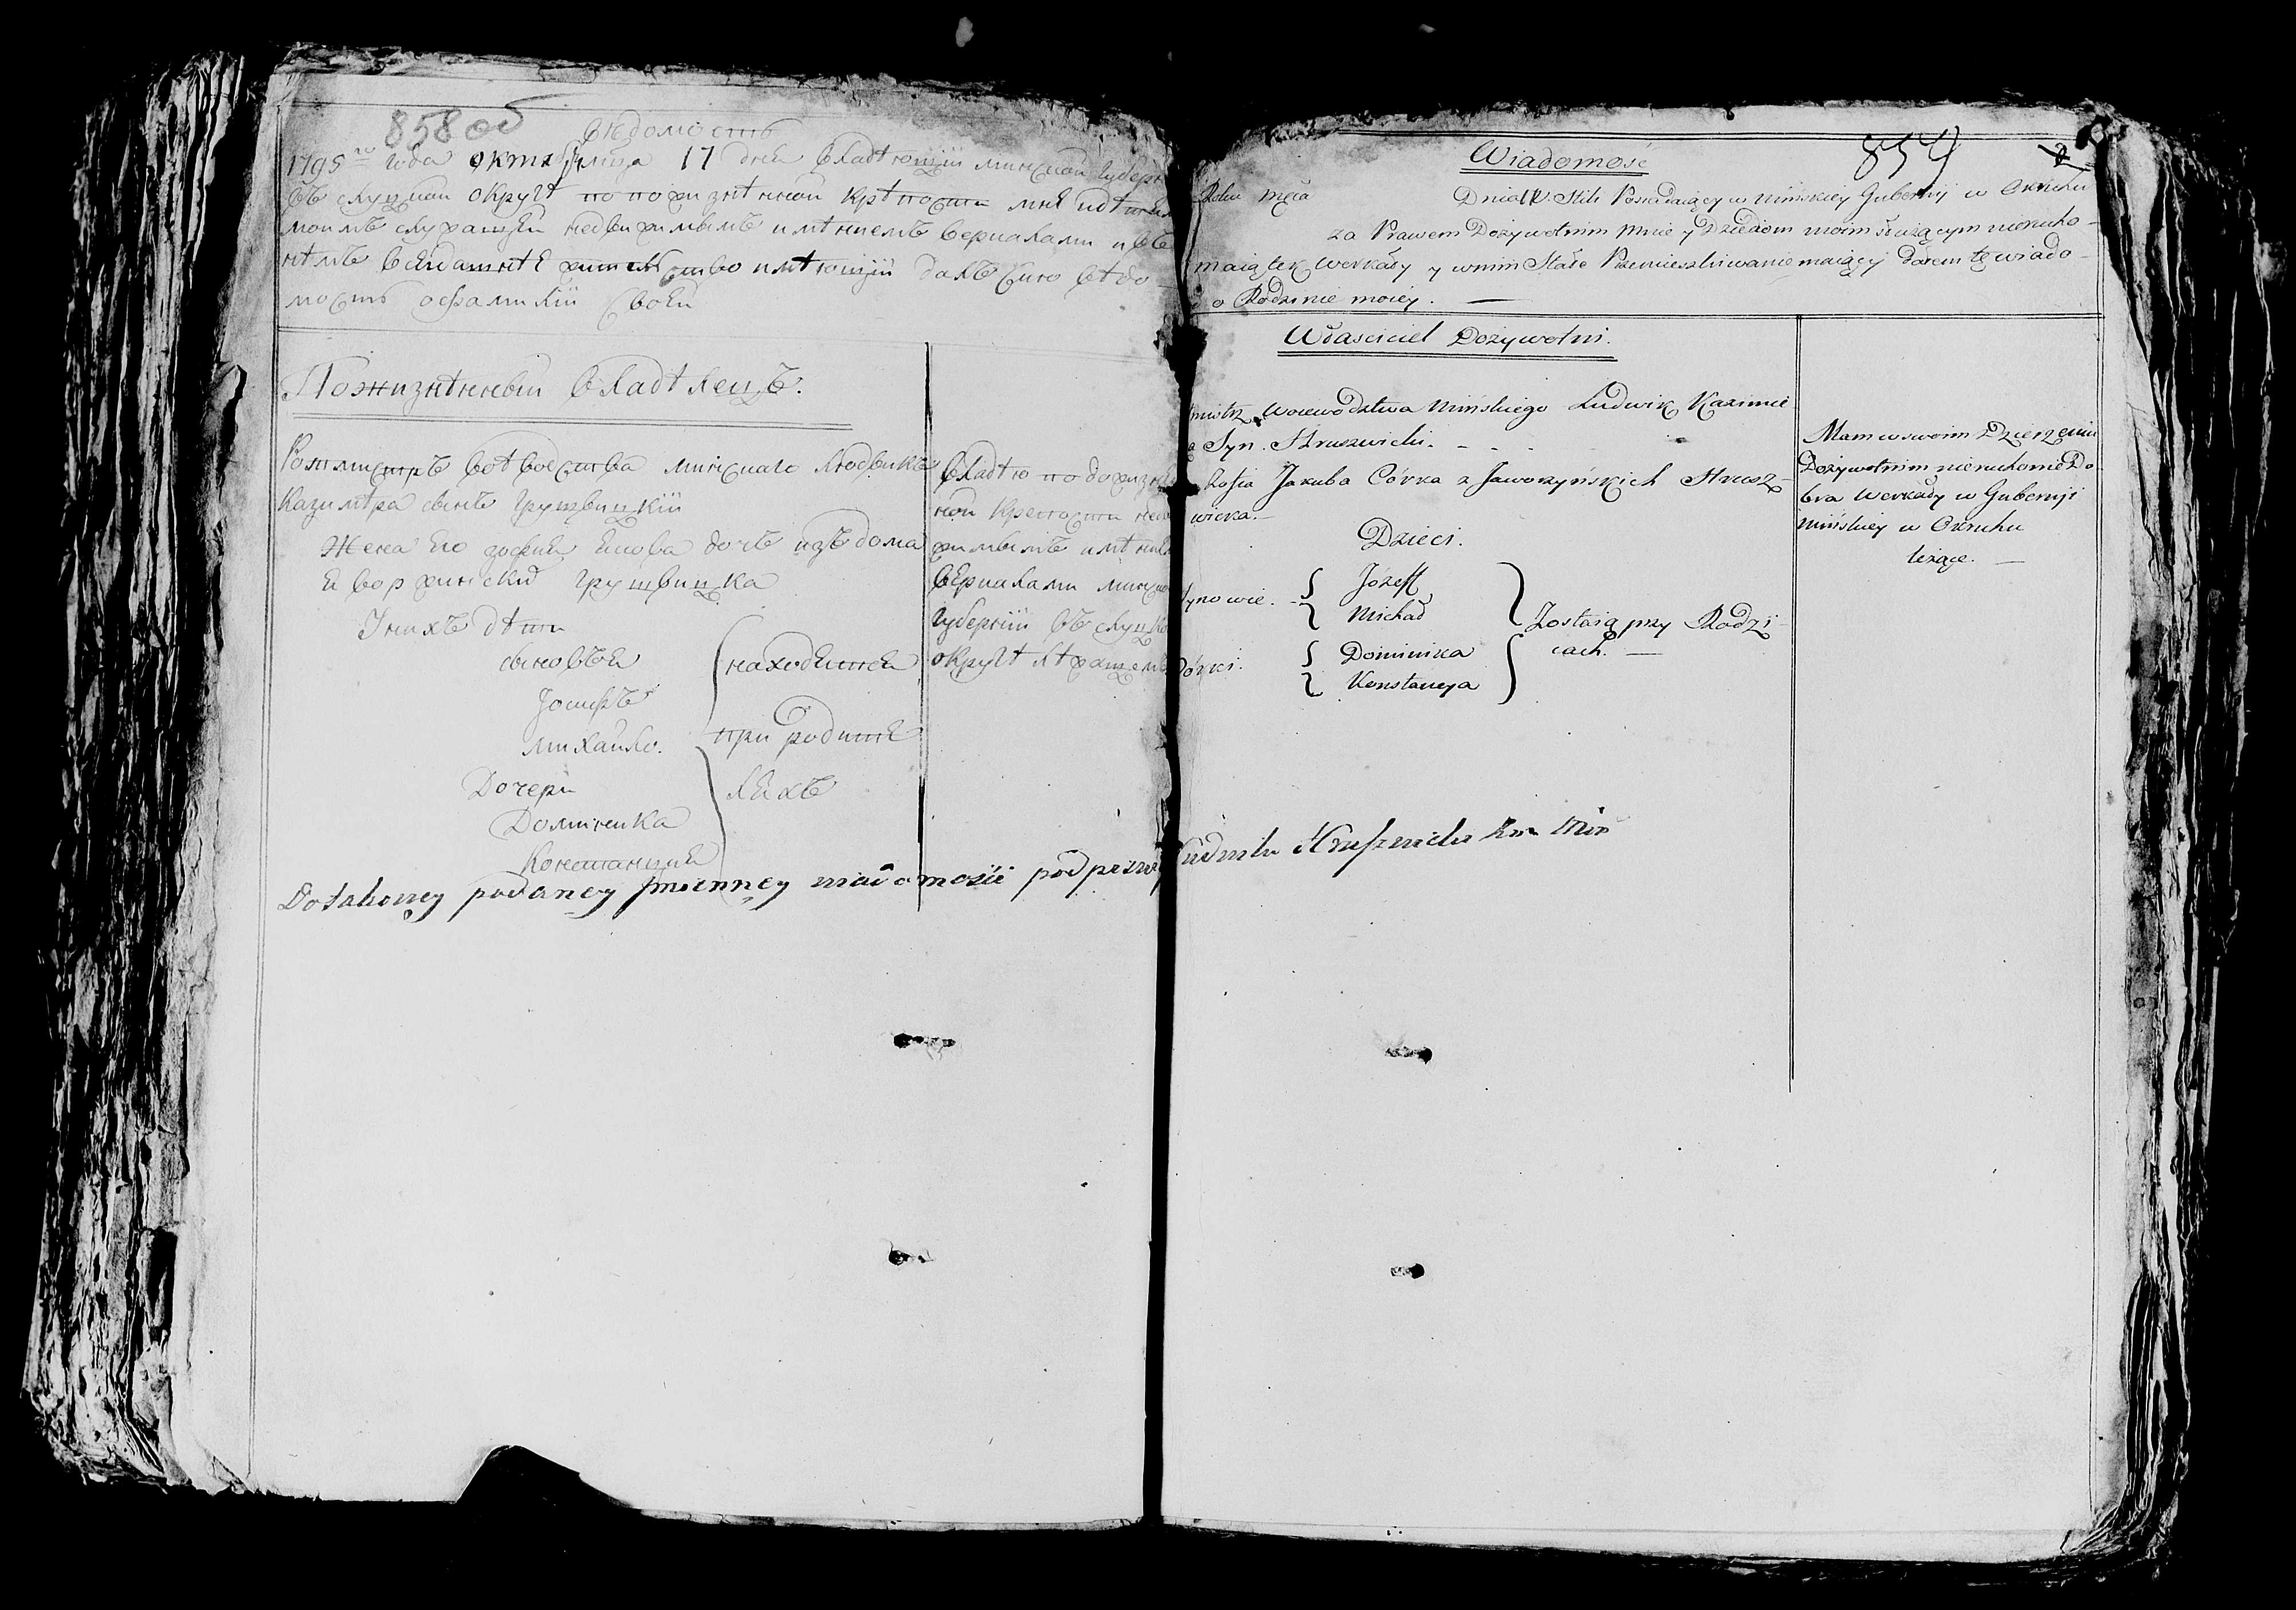 858 об
Вѣдомость
1795 го года октября мца 17 дня владѣющий минской губерн
въ слуцкой округѣ по пожизнѣнной крѣпости мнѣ и дѣтям
моимъ служащей недвижимымъ имѣниемъ веркалами и въ
нѣмъ всегдашнѣе жительство имѣющий далъ сию вѣдо-
мость о фамилии своей
Пожизнѣнный владѣлецъ.
Ротмистръ воѣводства минскаго людвикъ
казимѣра сынъ грушвицкий
жена его зофия якова дочь изъ дома
яворжинских грушвицка
У нихъ дѣти
сыновья
Иосифъ
михайло.
Дочери
Доминика
констанция
находятся
при родите
ляхъ
владѣю по дожизн
ной крепости недв
жимымъ имѣни
веркалами минско
губернии въ слуцко
округѣ лѣжащемъ
Do takowey podaney imienney wiadomości podpisuię
Wiadomość
859
2
Roku Mca Dnia V. Stili Posiadaiący w Mińskiey Guberniy w Okruhu
za Prawem Dożywotnim mnie y Dzieciom moim służącym nierucho-
maiątek Werkały y w nim Stałe Przemieszkiwanie maiący daiem tę wiado-
o Rodzinie moiey. —
Właściciel Dożywotni.
mistrz Woiewodztwa Mińskiego Ludwik Kazimie
a Syn. Hruszwicki. - - -
Zofia Jakuba Córka z Jaworzyńskich Hrusz-
wicka. —
Dzieci.
ynowie. — Józeff
Michał
órki. Dominika
Konstancya
Zostaią przy Rodzi-
cach. —
Mam w swoim Dzierżeniu
Dożywotnim nieruchome Do-
bra Werkały w Guberniji
Mińskiey w Okruhu
leżące. —
Ludwik Hruszwicki Rm Min